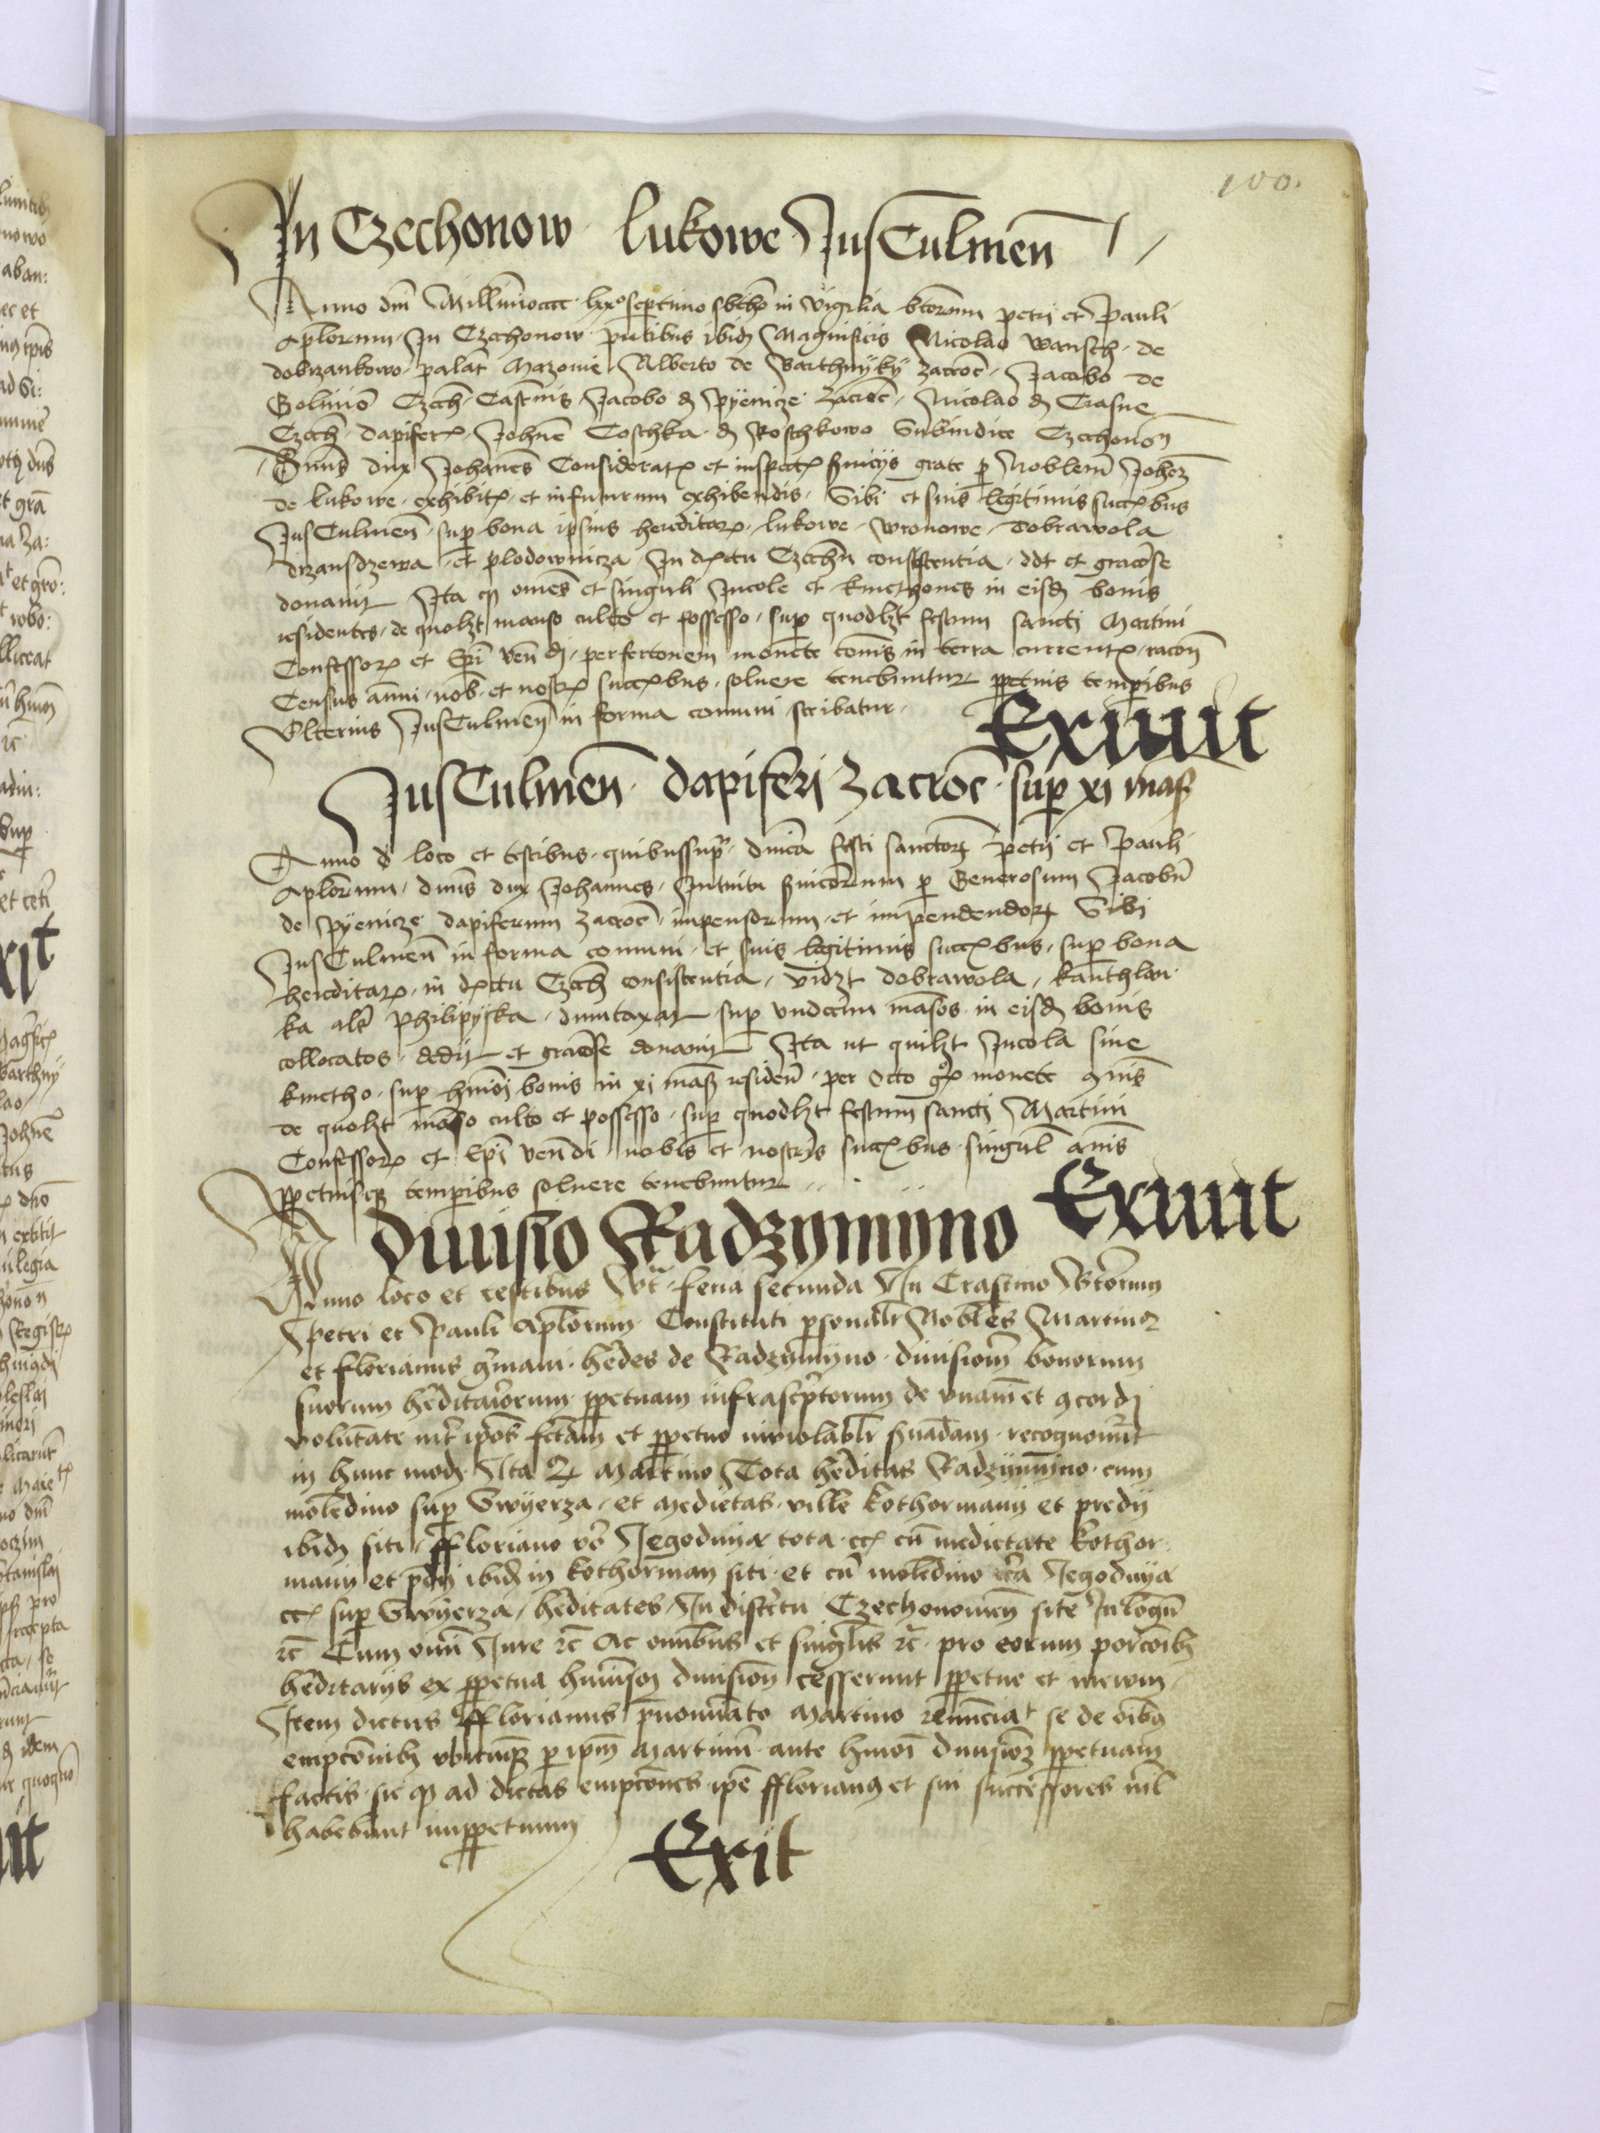 100.
In Czechonow lukowe JusCulmen̄
Anno dm̄ Millm̄occcc lxxo septimo sbtho in vigilia btorum petri et Pauli
Aplorum In Czechonow pntibus ibid Magnificis Nicolao wansch de
dobrzankowo palat Mazovie Alberto de Barthnyky zacroc̄ Jacobo de
Golmio Czech Castnis Jacobo d pyenicze zacroc̄ Nicolao d Crasne
Czech dapifer Johne Coschka d Roschkowo Subiudice Czechonon
Dnus dux Johanes Considerat et inspect suicijs grate p Noblem Johem
de lukowe exhibit et infuturum exhibendis Sibi et suis legitimis succ bus
JusCulmen̄ sup bona ipsius hereditar lukowe wronowe dobrawola
dizansdzewa et plodownicza In dctu Czechn consistentia ddt et graciose
donavit Ita q omes et singuli Incole et kmethones in eisd bonis
residentes de quolzt manso culto et possesso sup quodlzt festum sancti Martini
Confessor et Epi ven di per fertonem monete cois in terra current racon
Census anni nob et nostr succ bus solvere tenebuntur ppetuis temporibus
Ulterius JusCulmen̄ in forma comuni scribatur
Exiuit
JusCulmen̄ dapiferi Zacroc̄ sup xi mas
Anno d loco et testibus quibussup dnica festi sanctor petri et Pauli
Aplorum dnus dux Johannes Intuitu suicorum p Generosum Jacobu
de pyenicze dapiferum zacroc̄ impensorum et impendendor Sibi
JusCulmen̄ in forma comuni et suis legitimis succ bus sup bona
hereditar in dctu Czech consistentia vidzt dobrawola kanthlan
ka als Philipyska dumtaxat sup undecim masos in eisd bonis
collocatos dedit et graciose donavit Ita ut quilzt Incola sive
kmetho sup hmoi bonis in xi mas residen per Octo gr monete cuis
de quolzt maso culto et possesso sup quodlzt festum sancti Martini
Confessor et Epi ven di nobis et nostris succ bus singul annis
ppetuisq temporibus solvere tenebuntur
Exiuit
diuisio Radzymyno
Anno loco et testibus ut feria secunda In Crastino Btorum
Petri et Pauli Aplorum Constituti psonalr Nobles Martinus
et florianus germani hedes de Radzymyno diuisiom bonorum
suorum heditariorum ppetuam infrascptorum de unaim et concordi
voluntate int ipos fctam et ppetuo inviolabilr suadam recognoverut
in hunc mod Ita q Martino Tota heditas Radzymyno cum
molendino sup Swyerza et Medietas ville kothormany et predij
ibid siti ffloriano vo Jegodnya tota cu medietate kothor
many et pdij ibid in kothorman siti et cu molendino Jegodnya
sup Swyerza heditates In districtu Czechonovien site In longu
rc Cum omi Jure rc Ac omibus et singlis rc pro eorum porcoib
heditarijs ex ppetua huiusmoi diuision cesserunt ppetue et inevum
Item dictus fflorianus pnominato Martino renuncia t se de oibus
empconib p ipm Martinu ante hmoi diuisioz ppetuam
factis sic q ad dictas empcones ipe fflorianus et sui successores nil
habebunt imppetuum
Exijt